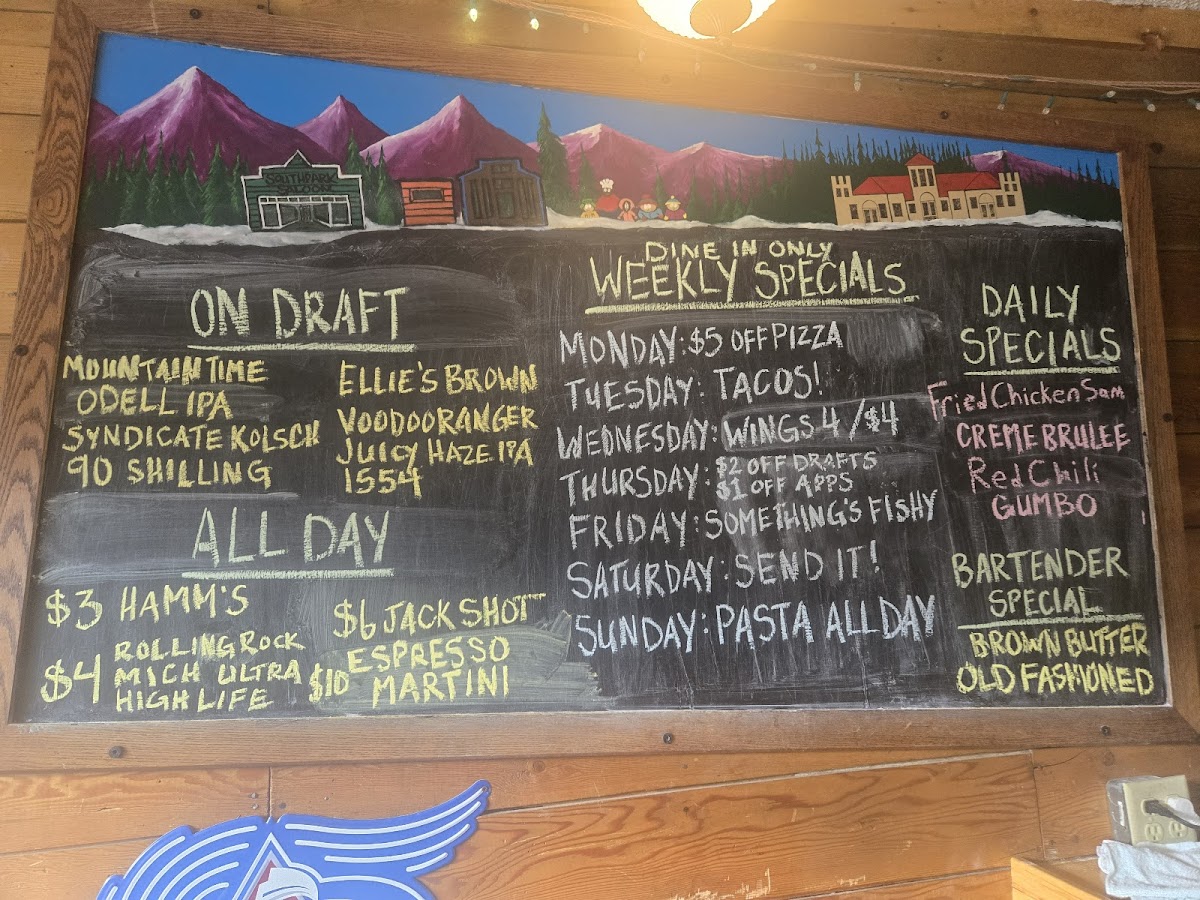 SOUTHPARK
SALOON
ON DRAFT
MOUNTAIN TIME
ODELL IPA
SYNDICATE KOLSCH
90 SHILLING
ELLIE'S BROWN
VOODOO RANGER
JUICY HAZE IPA
1554
ALL DAY
$3 HAMM'S
$4 ROLLING ROCK
MICH ULTRA
HIGH LIFE
$6 JACK SHOT
$10 ESPRESSO
MARTINI
DINE IN ONLY
WEEKLY SPECIALS
MONDAY: $5 OFF PIZZA
TUESDAY: TACOS!
WEDNESDAY: WINGS 4/$4
THURSDAY: $2 OFF DRAFTS
$1 OFF APPS
FRIDAY: SOMETHING'S FISHY
SATURDAY: SEND IT!
SUNDAY: PASTA ALL DAY
DAILY
SPECIALS
Fried Chicken Sam
CREME BRULEE
Red Chili
GUMBO
BARTENDER
SPECIAL
BROWN BUTTER
OLD FASHIONED